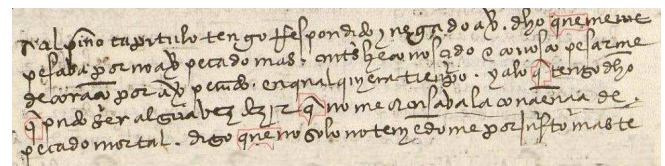 Y al pino capitulo tengo Respondido y negado av. dho que me me
pesaba por no av. pecado mas. antes he conoscido e conosco pesarme
de coraçon por av. pecado. en qualquiera tiempo. ya lo q tengo dho
q pudo ser alguna vez dezir q no me acusaba la conçiençia de
pecado mortal. digo que no solo no temiedome por justo mas te